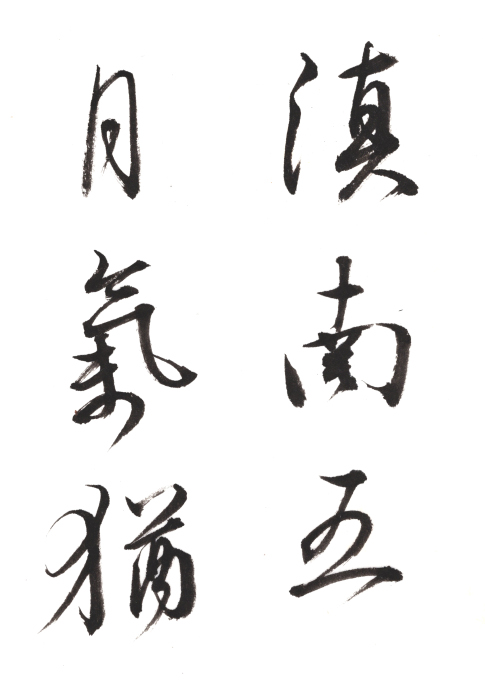 滇南五
月氣猶